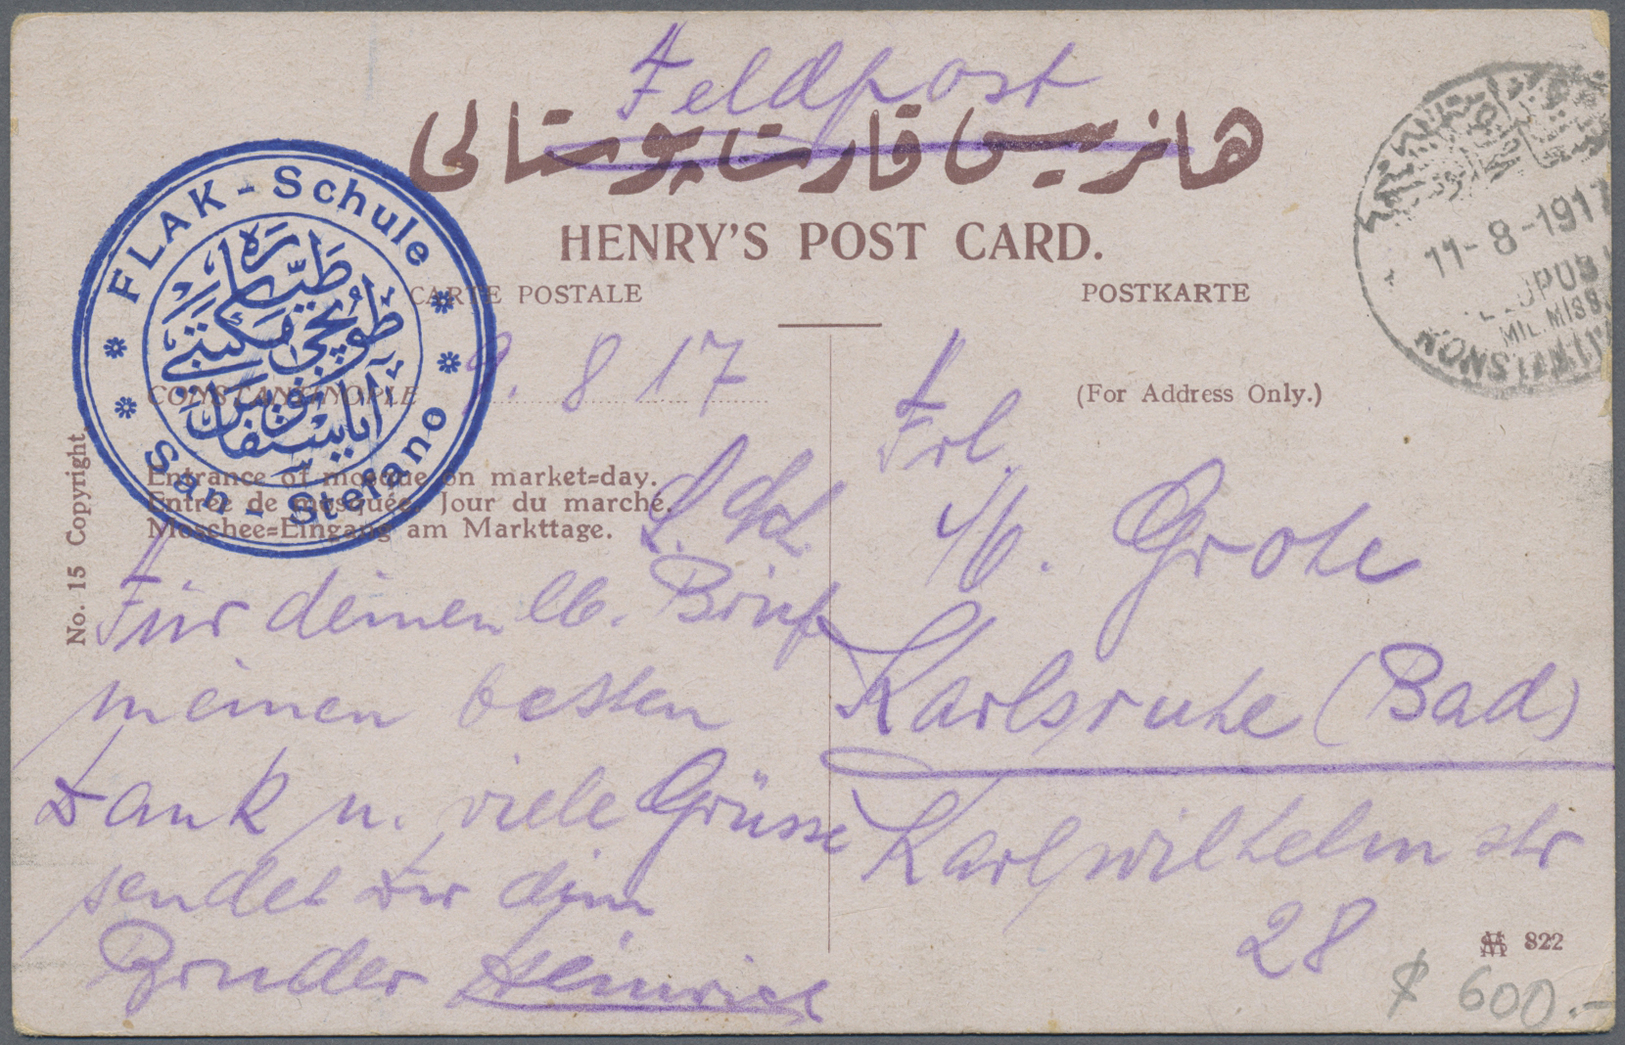 Feldpost
هانریس قارت پوستالی
HENRY'S POST CARD.
CARTE POSTALE
POSTKARTE
FLAK-Schule
طیاره
طوپجی مکتبی
آیاستفانوس
San-Stefano
11-8-1917
MIL.MISS.
KONSTANTI
CONSTANTINOPLE
9. 8 17
(For Address Only.)
Entrance of mosque on market=day.
Entrée de mosquée. Jour du marché.
Moschee=Eingang am Markttage.
No. 15 Copyright.
Für deinen lb. Brief
meinen besten
Dank u. viele Grüsse
sendet dir dein
Bruder Heinrich
Frl.
M. Grohe
Karlsruhe (Bad)
Karlwilhelm str
28
822
$ 600.-